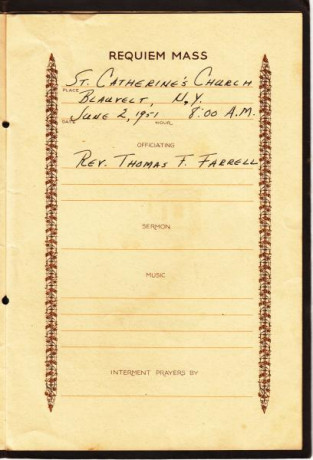 REQUIEM MASS
ST. CATHERINE'S CHURCH
PLACE
BLAUVELT, N.Y.
JUNE 2, 1951 8:00 A.M.
DATE HOUR
OFFICIATING
REV. THOMAS F. FARRELL
SERMON
MUSIC
INTERMENT PRAYERS BY